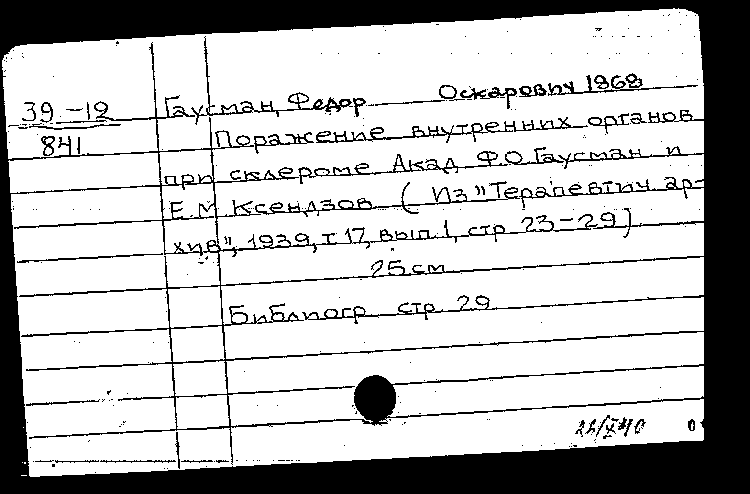 39-12
841
Гаусман, Федор Оскарович 1868
Поражение внутренних органов
при склероме Акад. Ф.О. Гаусман и
Е.М. Ксендзов ( Из "Терапевтич. ар-
хив", 1939, т. 17, вып. 1, стр. 23-29)
25 см
Библиогр. стр. 29
22/X 40